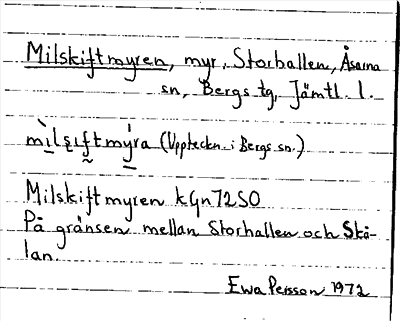 Milskiftmyren, myr, Storhallen, Åsarna
sn, Bergs tg, Jämtl. l.
(Uppteckn. i Bergs sn.)
Milskiftmyren kGn72SO
På gränsen mellan Storhallen och Skå-
lan.
Ewa Persson 1972